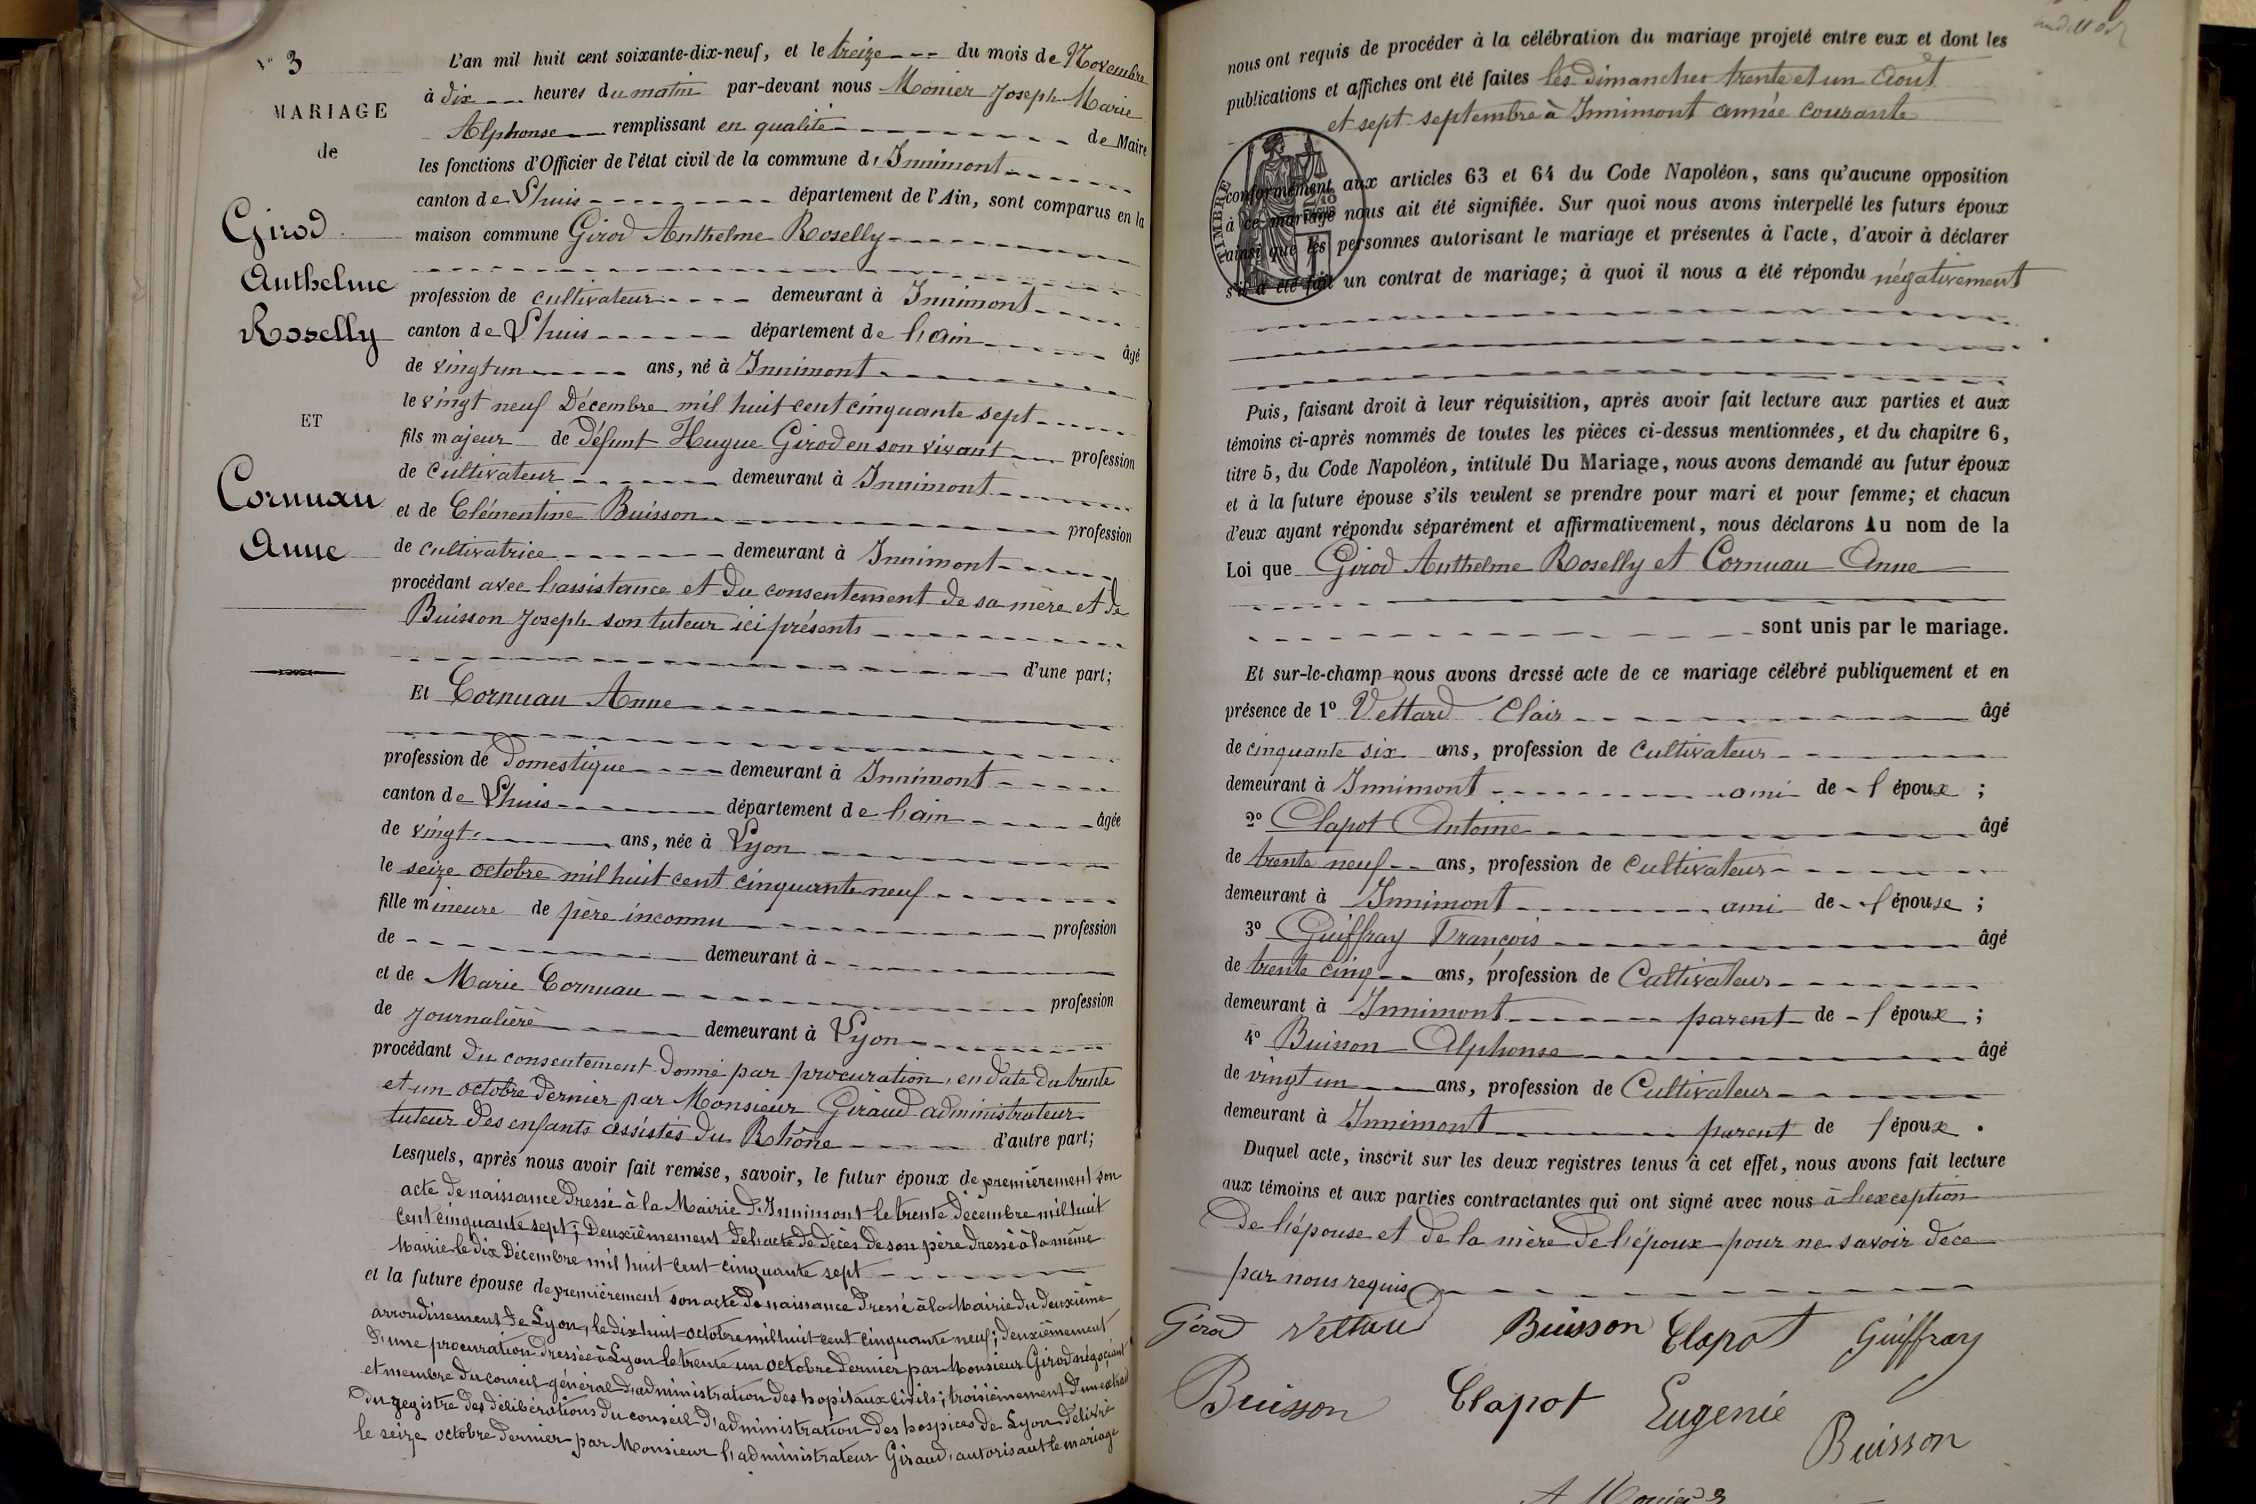 N° 3
MARIAGE
de
Girod
Anthelme
Roselly
ET
Cornuau
Anne
L'an mil huit cent soixante-dix-neuf, et le treize du mois de Novembre
à dix heures du matin par-devant nous Monier Joseph Marie
Alphonse remplissant en qualité de Maire
les fonctions d'Officier de l'état civil de la commune d'Innimont
canton de Lhuis département de l'Ain, sont comparus en la
maison commune Girod Anthelme Roselly
profession de cultivateur demeurant à Innimont
canton de Lhuis département de l'ain âgé
de vingt un ans, né à Innimont
le vingt neuf Décembre mil huit cent cinquante sept
fils majeur de défunt Hugue Girod en son vivant profession
de cultivateur demeurant à Innimont
et de Clémentine Buisson profession
de cultivatrice demeurant à Innimont
procédant avec l'assistance et du consentement de sa mère et de
Buisson Joseph son tuteur ici présents
d'une part;
Et Cornuau Anne
profession de domestique demeurant à Innimont
canton de Lhuis département de l'ain âgée
de vingt ans, née à Lyon
le seize octobre mil huit cent cinquante neuf
fille mineure de père inconnu profession
de demeurant à
et de Marie Cornuau profession
de journalière demeurant à Lyon
procédant du consentement donné par procuration, en date du trente
et un octobre dernier par Monsieur Giraud administrateur
tuteur des enfants assistés du Rhône d'autre part;
Lesquels, après nous avoir fait remise, savoir, le futur époux de premièrement son
acte de naissance dressé à la Mairie d'Innimont le trente décembre mil huit
cent cinquante sept; Deuxièmement de l'acte de décès de son père dressé à la même
Mairie le dix Décembre mil huit cent cinquante sept
et la future épouse de premièrement son acte de naissance dressé à la Mairie du deuxième
arrondissement de Lyon, le dix huit octobre mil huit cent cinquante neuf; deuxièmement
d'une procuration dressée à Lyon le trente un octobre dernier par Monsieur Girod négociant
et membre du conseil général d'administration des hopitaux civils; troisièmement d'un extrait
du registre des délibérations du conseil d'administration des hospices de Lyon délivré
le seize octobre dernier par Monsieur l'administrateur Giraud, autorisant le mariage
nous ont requis de procéder à la célébration du mariage projeté entre eux et dont les
publications et affiches ont été faites les dimanches trente et un Août
et sept septembre à Innimont année courante
TIMBRE
conformément aux articles 63 et 64 du Code Napoléon, sans qu'aucune opposition
à ce mariage nous ait été signifiée. Sur quoi nous avons interpellé les futurs époux
ainsi que les personnes autorisant le mariage et présentes à l'acte, d'avoir à déclarer
s'il a été fait un contrat de mariage; à quoi il nous a été répondu négativement
Puis, faisant droit à leur réquisition, après avoir fait lecture aux parties et aux
témoins ci-après nommés de toutes les pièces ci-dessus mentionnées, et du chapitre 6,
titre 5, du Code Napoléon, intitulé Du Mariage, nous avons demandé au futur époux
et à la future épouse s'ils veulent se prendre pour mari et pour femme; et chacun
d'eux ayant répondu séparément et affirmativement, nous déclarons Au nom de la
Loi que Girod Anthelme Roselly et Cornuau Anne
sont unis par le mariage.
Et sur-le-champ nous avons dressé acte de ce mariage célébré publiquement et en
présence de 1° Vettard Clair âgé
de cinquante six ans, profession de cultivateur
demeurant à Innimont ami de l'époux ;
2° Clapot Antoine âgé
de trente neuf ans, profession de cultivateur
demeurant à Innimont ami de l'épouse ;
3° Guiffray François âgé
de trente cinq ans, profession de Cultivateur
demeurant à Innimont parent de l'époux ;
4° Buisson Alphonse âgé
de vingt un ans, profession de Cultivateur
demeurant à Innimont parent de l'époux .
Duquel acte, inscrit sur les deux registres tenus à cet effet, nous avons fait lecture
aux témoins et aux parties contractantes qui ont signé avec nous à l'exception
de l'épouse et de la mère de l'époux pour ne savoir de ce
par nous requis
Girod Vettard Buisson Clapot Guiffray
Buisson Clapot Eugenie
Buisson